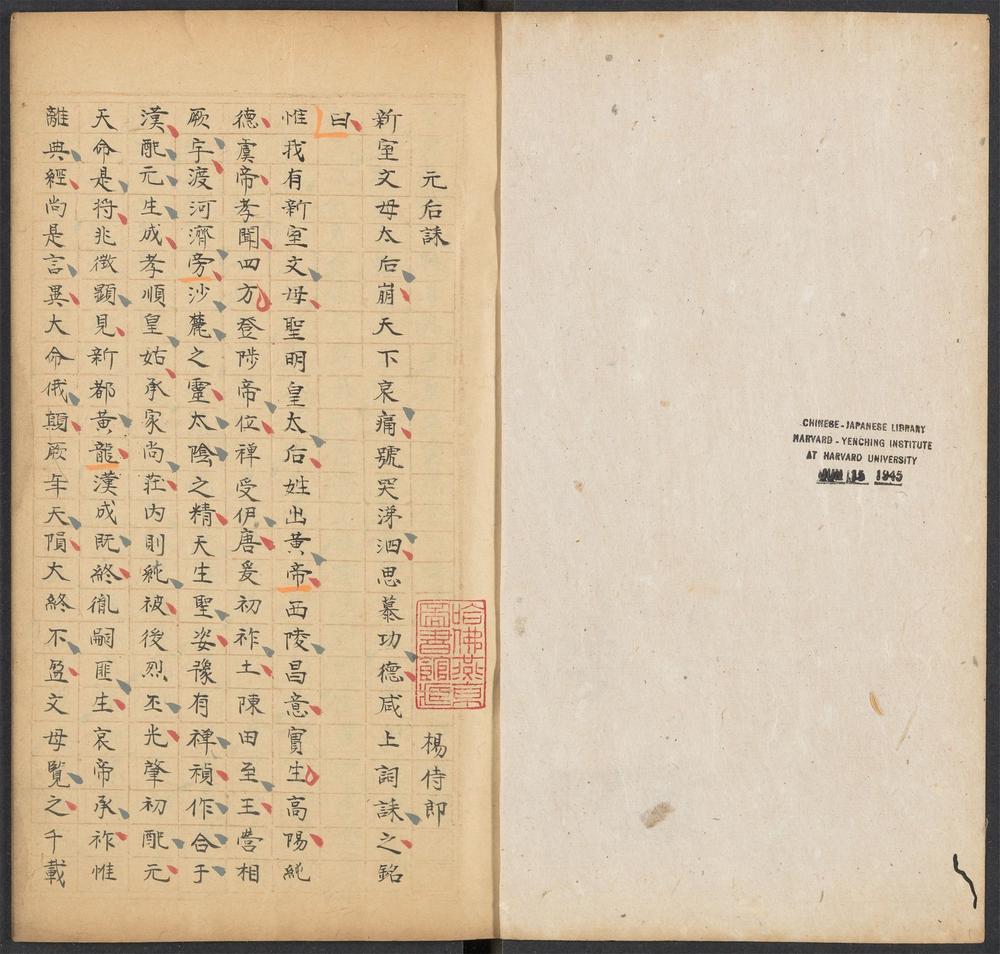 CHINESE-JAPANESE LIBRARY
HARVARD-YENCHING INSTITUTE
AT HARVARD UNIVERSITY
JUN 15 1945
元后誄 楊侍郎
哈佛燕京
圖書館藏
新室文母太后崩天下哀痛號哭涕泗思慕功德咸上詞誄之銘
曰
惟我有新室文母聖明皇太后姓出黃帝西陵昌意實生高陽純
德虞帝孝聞四方登陟帝位禪受伊唐爰初祚土陳田至王營相
厥宇渡河濟旁沙麓之靈太陰之精天生聖姿豫有禪禎作合于
漢配元生成孝順皇姑承家尚莊内則純被後烈丕光肇初配元
天命是将兆徵顯見新都黃龍漢成既終胤嗣匪生哀帝承祚惟
離典經尚是言異大命俄顛厥年夭隕大終不盈文母覽之千載